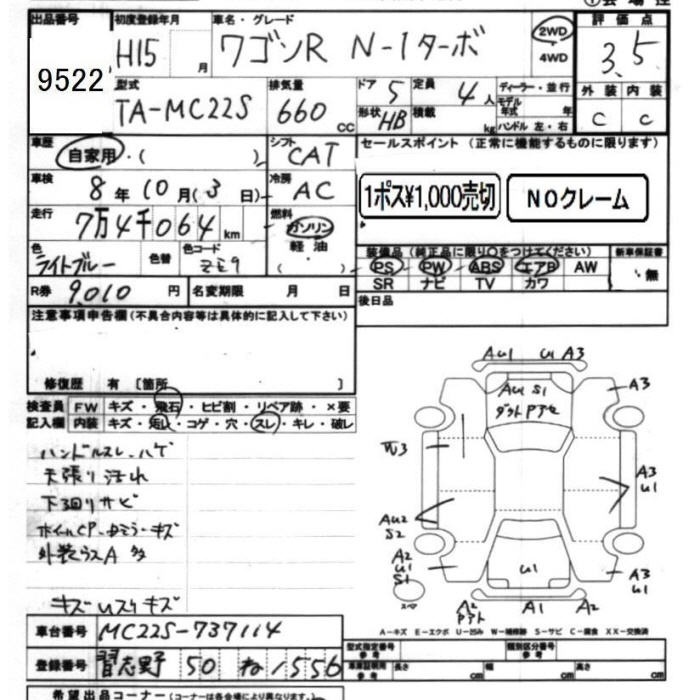 出品番号 初度登録年月 車名・グレード 評価点
9522 H15 月 ワゴンR N-1ターボ 2WD 4WD 3.5
外装 内装
C C
型式 排気量 ドア 5 定員 4人 ディーラー・並行
TA-MC22S 660 CC 形状 HB 積載 kg モデル年式 年
ハンドル 左・右
車歴 自家用・( ) シフト CAT セールスポイント (正常に機能するものに限ります)
車検 8年10月(3日) 冷房 AC 1ポス¥1,000売切 NOクレーム
走行 7万4千064km 燃料 ガソリン 軽油 ( )
色 ライトブルー 色替 色コード ZZ9
装備品 (純正品に限り○をつけてください) 新車保証書
PS PW ABS エアB AW 無
SR ナビ TV カワ
R券 9,010円 名変期限 月 日 後日品
注意事項申告欄 (不具合内容等は具体的に記入して下さい)
修復歴 有 〔箇所 〕
検査員 FW キズ・飛石・ヒビ割・リペア跡・×要
記入欄 内装 キズ・短レ・コゲ・穴・スレ・キレ・破レ
ハンドルスレ、ハゲ
天張り汚れ
下回りサビ
外装ラスA多
AU1 U A3
AU1 S1
A3
W3
A3
U1
AU2
S2
A2
U1
S1
U1
A3
U1
スペア
A2 A1 A2
A-キズ E-エクボ U-凹み W-補修跡 S-サビ C-腐食 XX-交換済
車台番号 MC22S-737114
登録番号 習志野 50 ね 1556
型式指定番号 参考 類別区分番号 参考
車庫証明用 参考 長さ cm 幅 cm 高さ cm
希望出品コーナー (コーナーは各会場により異なります。)